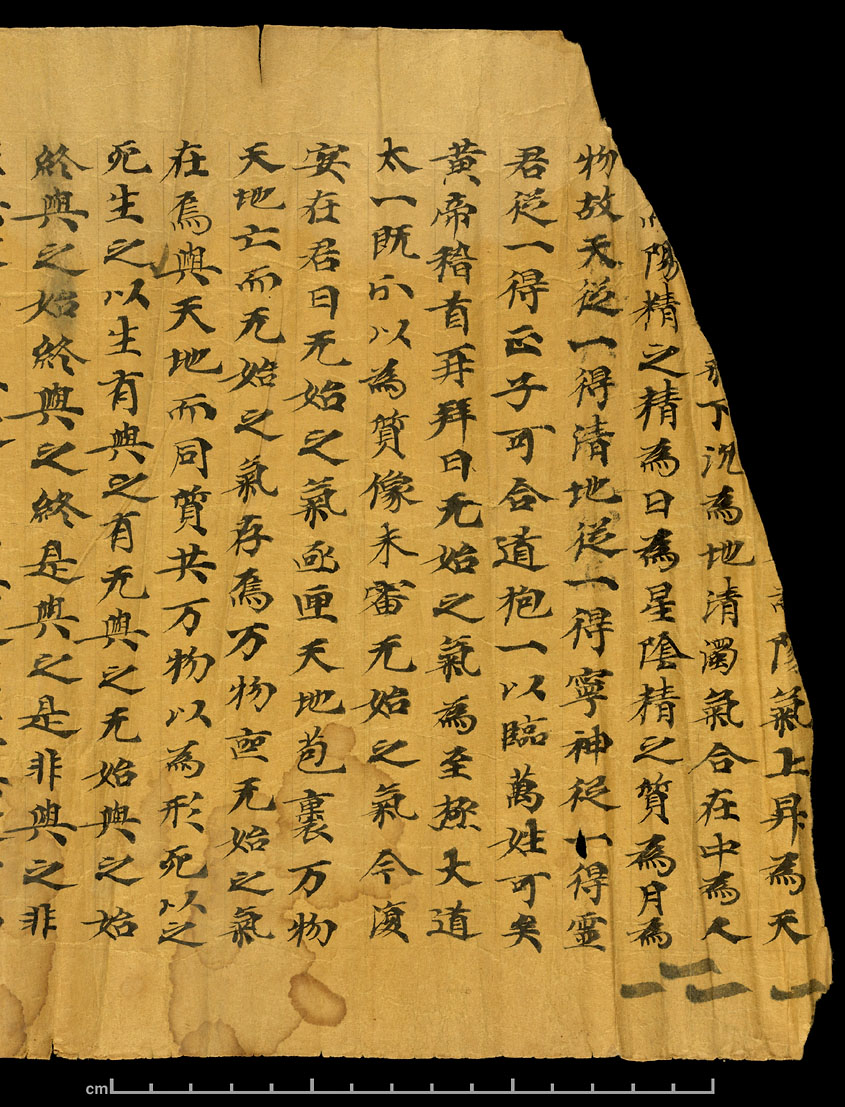 陽氣上昇為天
下沉為地清濁氣合在中為人
陽精之精為日為星陰精之質為月為
物故天從一得清地從一得寧神從一得靈
君從一得正子可合道抱一以臨萬姓可矣
黃帝稽首再拜曰无始之氣為至極大道
太一既以為質像未審无始之氣今復
安在君曰无始之氣匝天地苞裹万物
天地亡而无始之氣存焉万物无始之氣
在焉與天地而同質共万物以為形死以之
死生之以生有與之有无與之无始與之始
終與之始終與之終是與之是非與之非